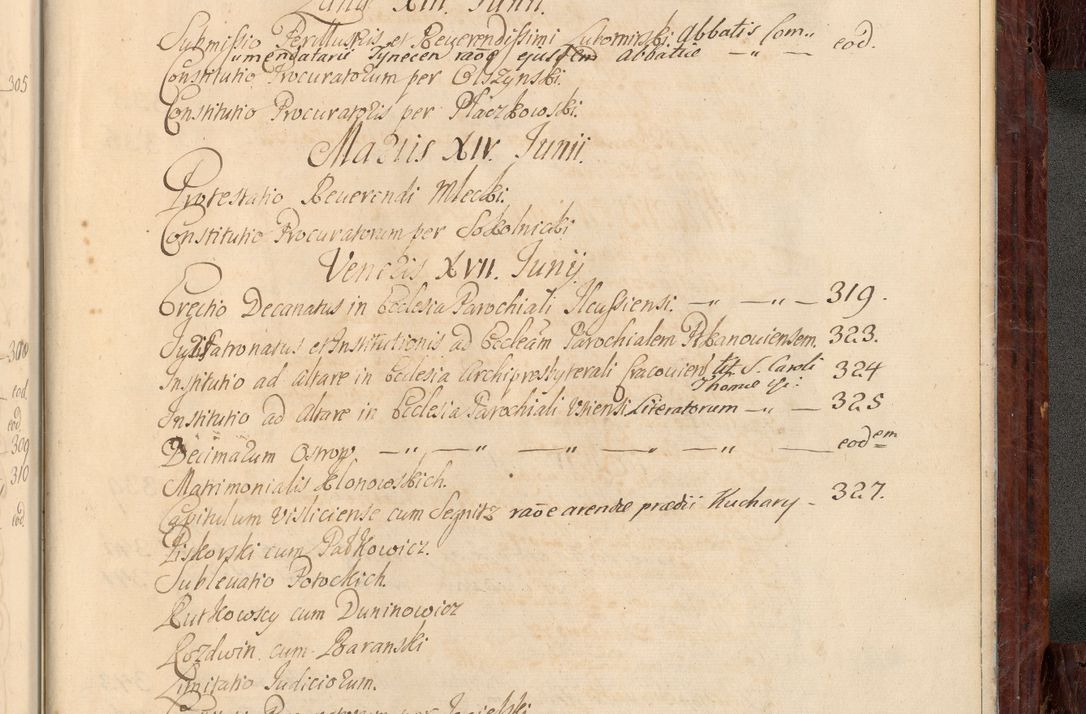 Lunæ XIII. Junii.
Submissio Perillustris et Reverendissimi Lubomirski Abbatis Com„
umendatarii Tynecen raõe ejusdem Abbatiæ — „ — eod.
Constitutio Procuratorum per Olszynski.
Constitutio Procuratoris per Płaczkowski.
Martis XIV. Junii.
Protestatio Reverendi Mlecki.
Constitutio Procuratorum per Sokolnicki
Veneris XVII. Junij
Erectio Decanatus in Ecclesia Parochiali Ilcussiensi. — „ — „ — 319.
Juris Patronatus et Institutionis ad Eccleam Parochialem Rzbanoviensem. 323.
Institutio ad Altare in Ecclesia Archipresbyterali Cracovien tit. S. Caroli 324
Thomæ
Institutio ad Altare in Ecclesia Parochiali Usiensi Literatorum — „ — 325
Decimarum Ostrop. — „ — „ — „ — „ — „ — eodem
Matrimonialis Klonowskich.
Capitulum Visliciense cum Segnitz raõe arendæ prædii Kuchary — 327.
Piskorski cum Patkowicz.
Sublevatio Potockich.
Rutkowscy cum Duninowicz
Rozdwin cum Baranski
Limitatio Judiciorum.
305
eod
eod
309
310
eod